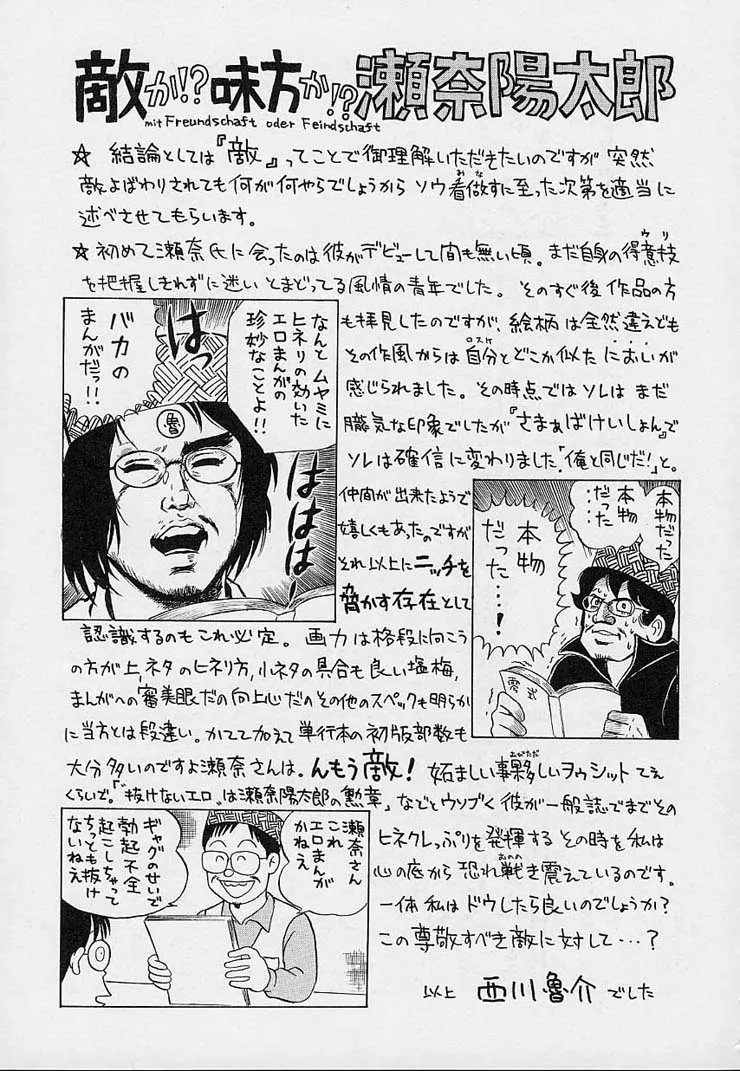 敵か!?味方か!?瀬奈陽太郎
mit Freundschaft oder Feindschaft
☆ 結論としては『敵』ってことで御理解いただきたいのですが 突然
敵よばわりされても何が何やらでしょうから ソウ看做すに至った次第を適当に
述べさせてもらいます。
☆ 初めて瀬奈氏に会ったのは彼がデビューして間も無い頃。まだ自身の得意技
を把握しきれずに迷い とまどってる風情の青年でした。そのすぐ後 作品の方
も拝見したのですが、絵柄は全然違えども
その作風からは自分とどこか似た においが
感じられました。その時点ではソレは まだ
朧気な印象でしたが『さまぁばけいしょん』で
ソレは確信に変わりました「俺と同じだ!」と。
仲間が出来たようで
嬉しくもあったのですが
それ以上にニッチを
脅かす存在として
認識するのもこれ必定。画力は格段に向こう
の方が上、ネタのヒネり方、小ネタの具合も良い塩梅、
まんがへの審美眼だの向上心だのその他のスペックも明らか
に当方とは段違い。かてて加えて単行本の初版部数も
大分多いのですよ瀬奈さんは。んもう敵! 妬ましい事夥しいヲゥシットてえ
くらいで。「"抜けないエロ"は瀬奈陽太郎の勲章」などとウソブく彼が一般誌でまでその
ヒネクレっぷりを発揮する その時を 私は
心の底から恐れ戦き震えているのです。
一体 私はドウしたら良いのでしょうか?
この尊敬すべき敵に対して…?
以上 西川魯介でした
なんとムヤミに
ヒネリの効いた
エロまんがの
珍妙なことよ!!
はっ
はははは
バカの
まんがだっ!!
魯
本物だった
本物
だった
……
本物
だった…!
瀬奈さん
これ
エロまんが
かねえ
ギャグのせいで
勃起不全
起こしちゃって
ちっとも抜け
ないねえ